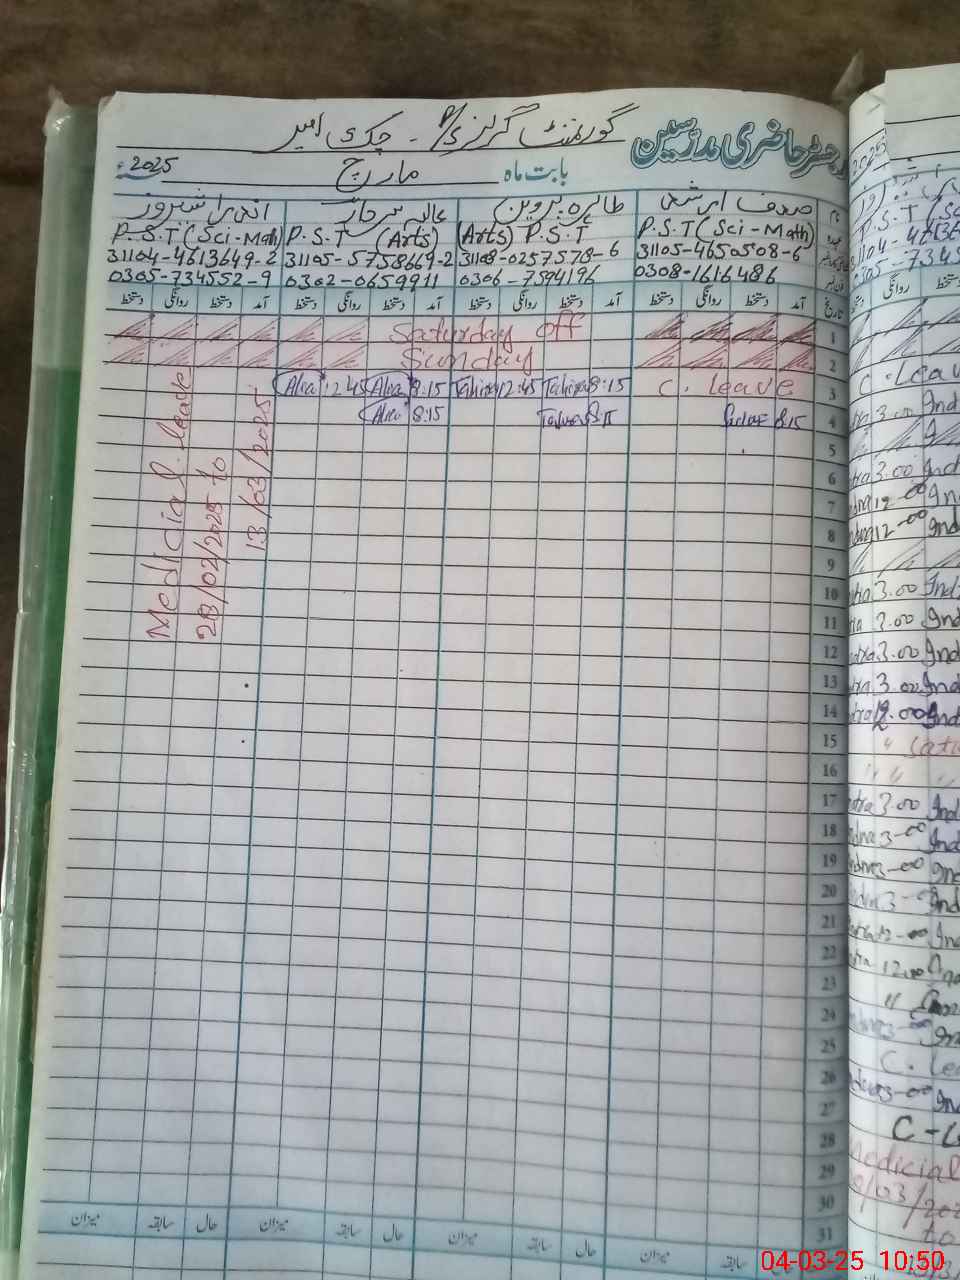 رجسٹر حاضری مدرسین گورنمنٹ گرلز P/S۔ چک امیر
بابت ماہ مارچ 2025ء
نام صدف ارشد طاہرہ پروین عالیہ سرتاج
عہدہ P.S.T (Sci-Math) (Arts) P.S.T P.S.T (Arts) P.S.T (Sci-Math)
31105-4650508-6 31108-0257578-6 31105-5758669-2 31104-4613649-2
0308-1616486 0306-7594196 0302-0659911 0305-734552-9
تاریخ آمد دستخط روانگی دستخط آمد دستخط روانگی دستخط آمد دستخط روانگی دستخط آمد دستخط روانگی دستخط
1 Saturday off
2 Sunday
3 C. leave Tahira 8:15 Tahira 12:45 Alia 8:15 Alia 12:45
4 8:15 8:15 Alia 8:15
Medicial leave
28/02/2025 to
13/03/2025
5
6
7
8
9
10
11
12
13
14
15
16
17
18
19
20
21
22
23
24
25
26
27
28
29
30
31
حال سابقہ میزان حال سابقہ میزان حال سابقہ میزان حال سابقہ میزان
C. Leav
3.00 Ind
3.00 Ind
12-00 In
12-00
3.00 Ind
3.00 Ind
3.00 Ind
3.00 Ind
12.00
3.00 Ind
3-00 Ind
3-00 Ind
3-00 Ind
12-00 Ind
12.00
3-00
C. Lea
3-00 Ind
C-L
medicial
to
04-03-25 10:50